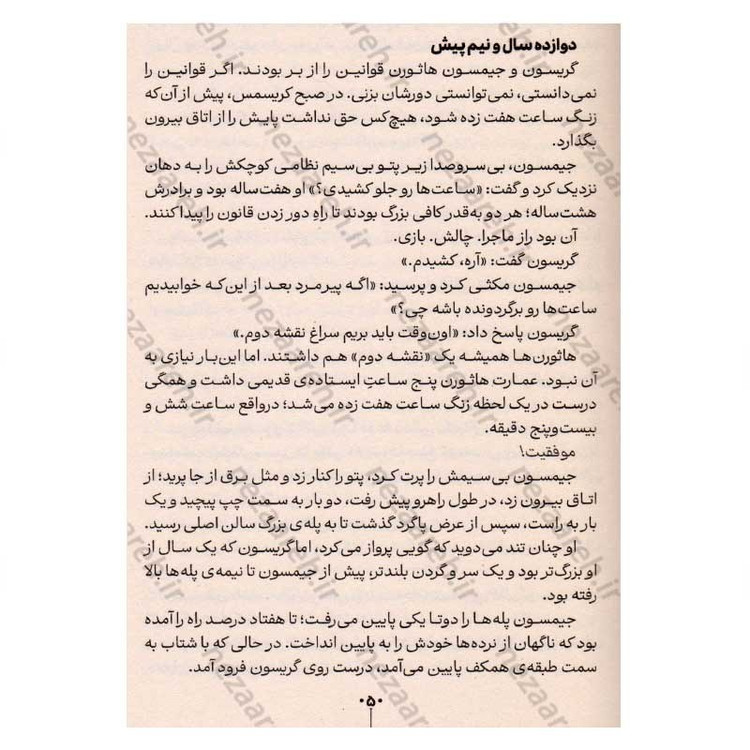 دوازده سال و نیم پیش
گریسون و جیمسون هاثورن قوانین را از بر بودند. اگر قوانین را
نمی‌دانستی، نمی‌توانستی دورشان بزنی. در صبح کریسمس، پیش از آن‌که
زنگ ساعت هفت زده شود، هیچ‌کس حق نداشت پایش را از اتاق بیرون
بگذارد.
جیمسون، بی‌سروصدا زیر پتو بی‌سیم نظامی کوچکش را به دهان
نزدیک کرد و گفت: «ساعت‌ها رو جلو کشیدی؟» او هفت‌ساله بود و برادرش
هشت‌ساله؛ هر دو به‌قدر کافی بزرگ بودند تا راهِ دور زدن قانون را پیدا کنند.
آن بود راز ماجرا. چالش. بازی.
گریسون گفت: «آره، کشیدم.»
جیمسون مکثی کرد و پرسید: «اگه پیرمرد بعد از این‌که خوابیدیم
ساعت‌ها رو برگردونده باشه چی؟»
گریسون پاسخ داد: «اون‌وقت باید بریم سراغ نقشه دوم.»
هاثورن‌ها همیشه یک «نقشه دوم» هم داشتند. اما این‌بار نیازی به
آن نبود. عمارت هاثورن پنج ساعتِ ایستاده‌ی قدیمی داشت و همگی
درست در یک لحظه زنگ ساعت هفت زده می‌شد؛ درواقع ساعت شش و
بیست‌وپنج دقیقه.
موفقیت!
جیمسون بی‌سیمش را پرت کرد، پتو را کنار زد و مثل برق از جا پرید؛ از
اتاق بیرون زد، در طول راهرو پیش رفت، دو بار به سمت چپ پیچید و یک
بار به راست، سپس از عرض پاگرد گذشت تا به پله‌ی بزرگ سالن اصلی رسید.
او چنان تند می‌دوید که گویی پرواز می‌کرد، اما گریسون که یک سال از
او بزرگ‌تر بود و یک سر و گردن بلندتر، پیش از جیمسون تا نیمه‌ی پله‌ها بالا
رفته بود.
جیمسون پله‌ها را دوتا یکی پایین می‌رفت؛ تا هفتاد درصد راه را آمده
بود که ناگهان از نرده‌ها خودش را به پایین انداخت. در حالی که با شتاب به
سمت طبقه‌ی همکف پایین می‌آمد، درست روی گریسون فرود آمد.
۵
nezaareh.ir